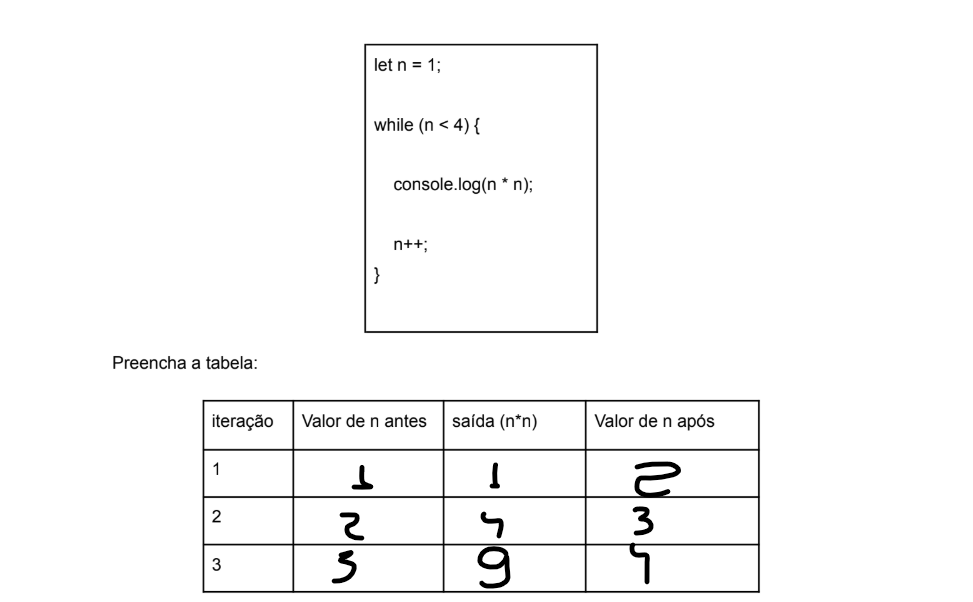 let n = 1;
while (n < 4) {
console.log(n * n);
n++;
}
Preencha a tabela:
iteração Valor de n antes saída (n*n) Valor de n após
1 1 1 2
2 2 4 3
3 3 9 4